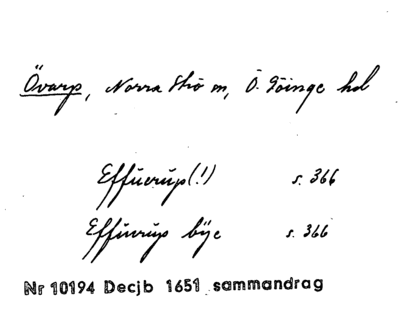 Övarp, Norra Strö sn, Ö. Göinge hd
Effuerup(!) s. 366
Effuerup bÿe s. 366
Nr 10194 Decjb 1651 sammandrag